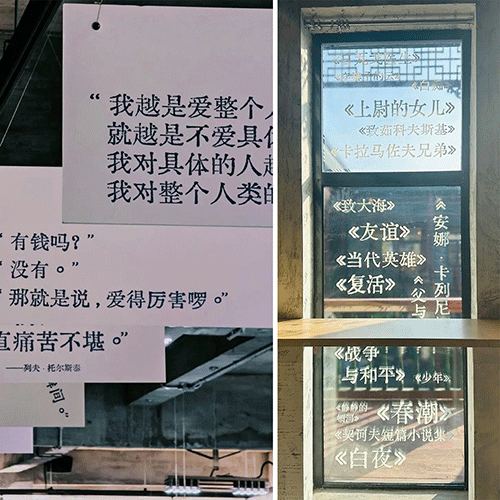 “我越是爱整个人
就越是不爱具体
我对具体的人越
我对整个人类的
“有钱吗？”
“没有。”
“那就是说，爱得厉害啰。”
直痛苦不堪。”
——列夫·托尔斯泰
间。”
《白痴》
《上尉的女儿》
《致茹科夫斯基》
《卡拉马佐夫兄弟》
《致大海》
《友谊》
《当代英雄》
《复活》
《安娜·卡列尼
《父与
《战争
与和平》
《少年》
《静静的
顿河》
《春潮》
《契诃夫短篇小说集》
《白夜》